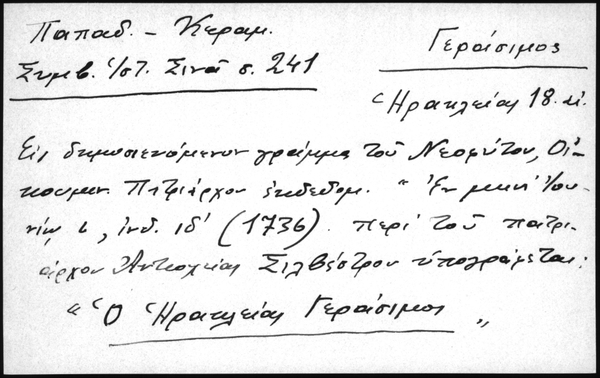 Παπαδ. - Κεραμ.
Συμβ. Ἱστ. Σινᾶ σ. 241
Γεράσιμος
Ἡρακλείας 18. αἰ.
Εἰς δημοσιευόμενον γράμμα τοῦ Νεοφύτου, Οἰ-
κουμεν. Πατριάρχου ἐκδεδομ. "Ἐν μηνὶ Ἰου-
νίῳ , ἰνδ. ιδ' (1736) περὶ τοῦ πατρι-
άρχου Ἀντιοχείας Σιλβέστρου ὑπογράφεται:
"Ὁ Ἡρακλείας Γεράσιμος"